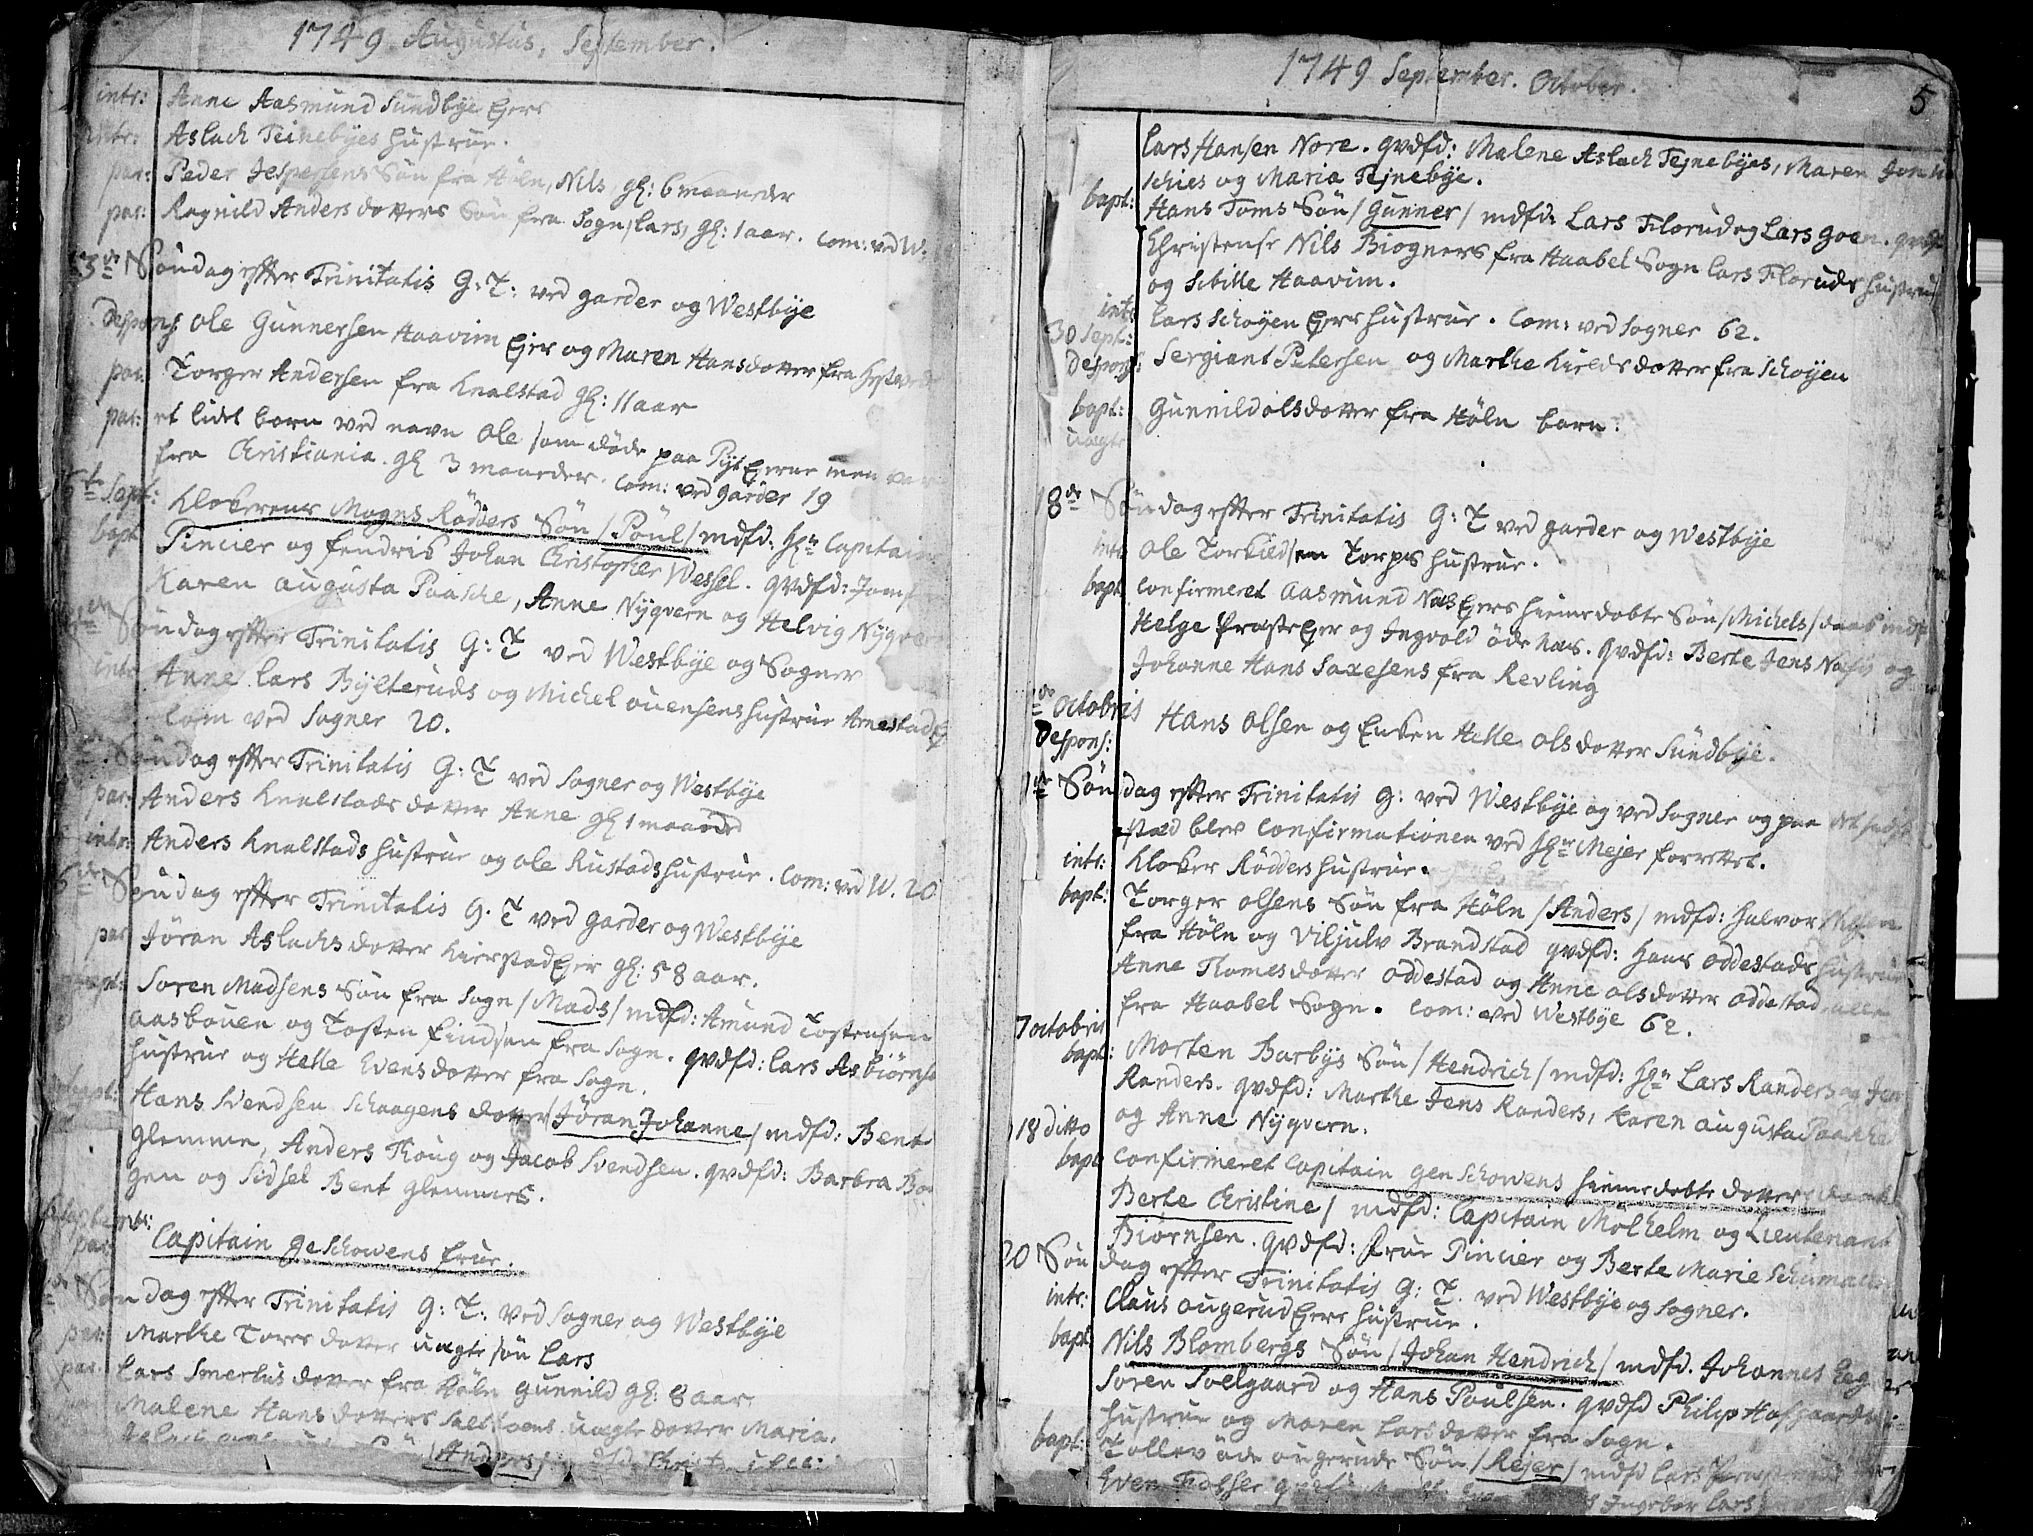 1749 Augustus, September.
intr: Anne Aasmund Sundbye Ejers
intr: Aslach Teinebyes hustrue.
par: Peder Jespersens Sön fra Höln, Nils, gl: 6 maaneder
par: Ragnild Anders dotters Sön fra Sogn, Lars, gl: 1 aar. Com: ved W.
13de Söndag efter Trinitatis G: T: ved garder og Westbye
Despons: Ole Gunnersen Haavim Ejer og Maren Hansdotter fra
par: Torger Andersen fra Knalstad gl: 11 aar
par: et lidet barn ved navn Ole som döde paa men var
fra Christiania. gl 3 maaneder. Com: ved garder 19
Sept: Klokerens Mogns Rödders Sön / Poul / mdfd: Hr Capitain
bapt Pincier og fendrik Johan Christopher Wessel. qvdfd: Jomfr
Karen augusta Paasche, Anne Nyqvern og Helvig Nyqvern
Söndag efter Trinitatis G: T ved Westbye og Sogner
intr Anne Lars Bylteruds og Michel ouensens hustrue Arnestad
Com ved Sogner 20.
Söndag efter Trinitatis G: T ved Sogner og Westbye
par: Anders Knalstads dotter Anne gl 1 maaned
intr: Anders Knalstads hustrue og Ole Rustads hustrue. Com: ved W. 20
16de Söndag efter Trinitatis G. T ved garder og Westbye
par Jöran Aslachs dotter Kierstad Ejer gl: 58 aar.
bapt: Soren Madsens Sön fra Sogn / Mads / mdfd: Amund Tostensen
aasbouen og Tosten Eindsen fra Sogn. qvdfd: Lars Asbiörns
hustrue og Helle Evensdotter fra Sogn.
bapt: Hans Svendsen Schaagens dotter / Jöran Johanne / mdfd: Bent
Glemmen, Anders Thoug og Jacob Svendsen. qvdfd: Barbra
gen og Sidsel Bent Glemmers.
par: Capitain geschowens frue.
Söndag efter Trinitatis G: T: ved Sogner og Westbye
par: Marthe Tores dotter uægte sön Lars
par. Lars Smertus dotter fra Höln gunnild gl: 8 aar
Malene Hansdotters uægte dotter Maria.
/ Anders /
1749 September. October.
5
Lars Hansen Nore. qvdfd: Malene Aslach Tejnebyes, Maren Jon
schies og Maria Tejnebye.
bapt: Hans Toms Sön / Gunner / mdfd: Lars Florud og Lars goen. qvdfd
Christense Nils Biogners fra Haabel Sogn Lars Floruds hustrue
og Sibille Haavim.
intr Lars Schoyen Ejers hustrue. Com: ved Sogner 62.
30 Sept:
Despons: Sergiant Petersen og Marthe Kields dotter fra Schoyen
bapt: Gunnild Olsdotter fra Höln barn.
uægte
18de Söndag efter Trinitatis G: T ved garder og Westbye
intr Ole Torkildsen Torps hustrue.
bapt confirmeret Aasmund Næs Ejers hiemedobte Sön / Michels / daab mdfd
Helge Præste Ejer og Ingvold öde næs. qvdfd: Berte Jens Næsis og
Johanne Hans Saxesens fra Revling
Octobris
Despons: Hans Olsen og Enken Helle Olsdotter Sundbye.
Söndag efter Trinitatis G: ved Westbye og ved Sogner og paa det sidste
sted blev Confirmationen ved Hr Mejer forrettet.
intr: Kloker Rödders hustrue.
bapt: Torger Olsens Sön fra Höln / Anders / mdfd: Halvor
fra Höln og Viljulv Brandstad qvdfd: Hans Oddestads hustrue
Anne Thomesdotter Oddestad og Anne Olsdotter Oddestad alle
fra Haabel Sogn. Com: ved Westbye 62.
7 octobris
bapt: Morten Barbys Sön / Hendrich / mdfd: Hr Lars Randers og Jens
Randers. qvdfd: Marthe Jens Randers, Karen augusta Paasche
og Anne Nyqvern.
18 ditto
bapt confirmeret Capitain Genschowens hiemedobte dotters daab
Berte Christine / mdfd: Capitain Molhelm og Lieutenant
Biörnsen. qvdfd: Frue Pincier og Berte Marie Schumacher
20 Söndag efter Trinitatis G: T. ved Westbye og Sogner.
intr: Claus ougerud Ejers hustrue.
bapt Nils Blombergs Sön / Johan Hendrich / mdfd. Johannes
Soren Soelgaard og Hans Poulsen. qvdfd Philip Hofgaards
hustrue og Maren Larsdotter fra Sogn.
bapt: Tollev öde ougeruds Sön / Rejer / mdfd Lars
Even Ingebor Lars